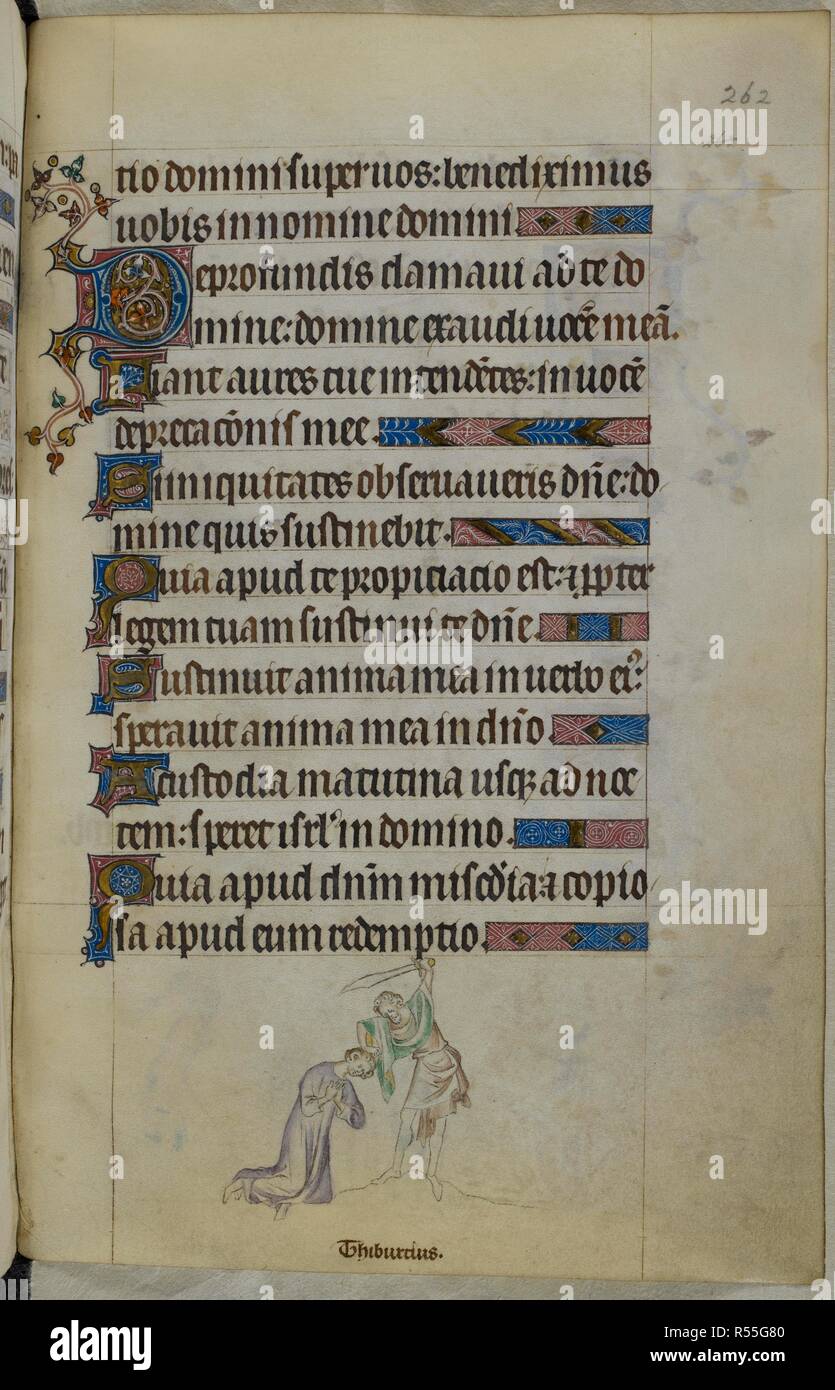 262
tio domini super uos: benediximus
uobis in nomine domini.
De profundis clamaui ad te do
mine: domine exaudi uocē meā.
Fiant aures tue intendētes: in uocē
deprecacōnis mee.
Si iniquitates obseruaueris dn̄e: do
mine quis sustinebit.
Quia apud te propiciacio est: ⁊ ꝓpter
legem tuam sustinui te dn̄e.
Sustinuit anima mea in uerbo eiꝰ:
sperauit anima mea in dn̄o.
A custodia matutina usqꝫ ad noc
tem: speret isrl' in domino.
Quia apud dn̄m mis͞cdia: ⁊ copio
sa apud eum redemptio.
Thiburcius.
alamy
Image ID: R55G80
www.alamy.com